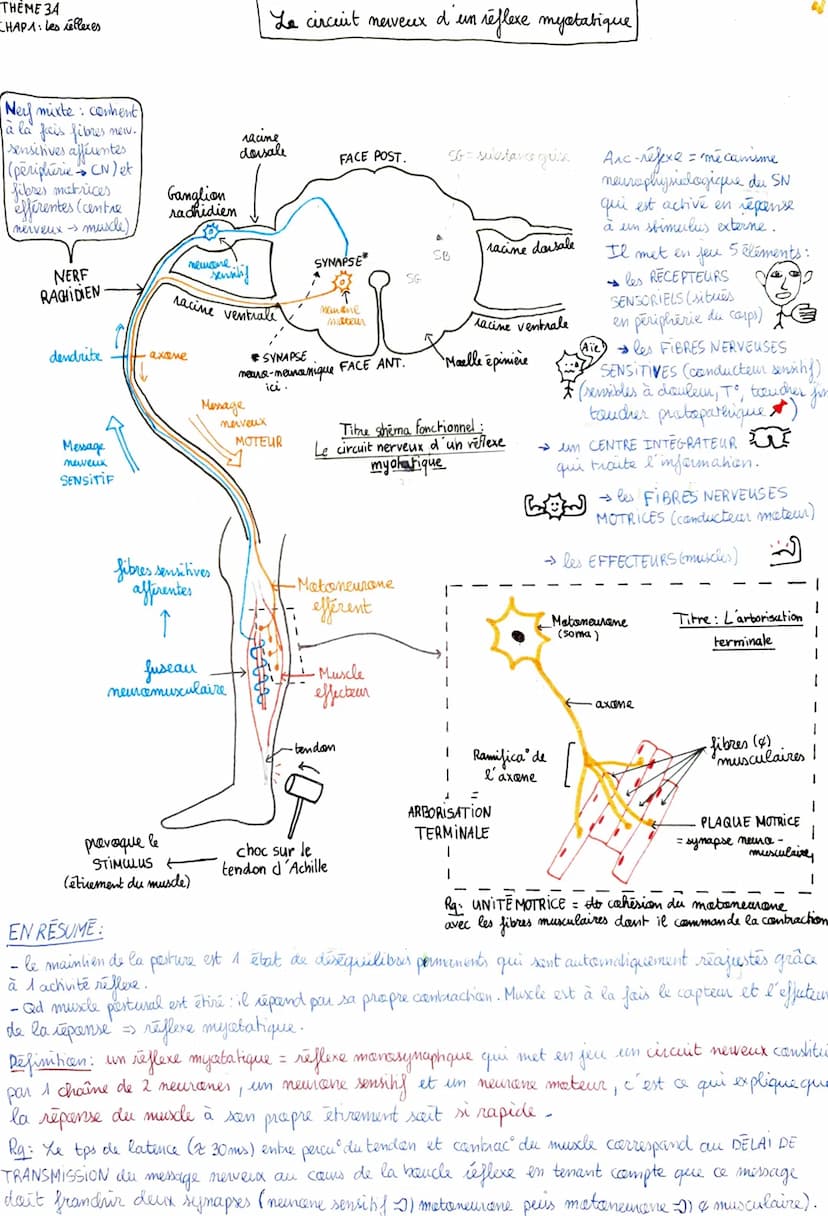 THÈME 3A
CHAP 1: Les réflexes
Le circuit nerveux d'un réflexe myotatique
Nerf mixte : contient
à la fois fibres nerv.
sensitives afférentes
(périphérie → CN) et
fibres motrices
efférentes (centre
nerveux → muscle)
NERF
RACHIDIEN
racine
dorsale
Ganglion
rachidien
neurone
sensitif
FACE POST.
SG = substance grise
SYNAPSE*
neurone
moteur
SB
SG
racine dorsale
racine ventrale
racine ventrale
* SYNAPSE
neuro-neuronique
ici.
FACE ANT.
Moelle épinière
dendrite
axone
Message
nerveux
MOTEUR
Message
nerveux
SENSITIF
Titre shéma fonctionnel :
Le circuit nerveux d'un réflexe
myotatique
Arc-réflexe = mécanisme
neurophysiologique du SN
qui est activé en réponse
à un stimulus externe.
Il met en jeu 5 éléments :
→ les RÉCEPTEURS
SENSORIELS (situés
en périphérie du corps)
Aïe!
→ les FIBRES NERVEUSES
SENSITIVES (conducteur sensitif)
(sensibles à douleur, T°, toucher fin
toucher protopathique)
→ un CENTRE INTÉGRATEUR
qui traite l'information.
→ les FIBRES NERVEUSES
MOTRICES (conducteur moteur)
→ les EFFECTEURS (muscles)
fibres sensitives
afférentes
Motoneurone
efférent
fuseau
neuromusculaire
Muscle
effecteur
tendon
choc sur le
tendon d'Achille
provoque le
STIMULUS
(étirement du muscle)
Titre : L'arborisation
terminale
Motoneurone
(soma)
axone
Ramifica° de
l'axone
=
ARBORISATION
TERMINALE
fibres (¢)
musculaires
PLAQUE MOTRICE
= synapse neuro-
musculaire
Rq: UNITÉ MOTRICE = cohésion du motoneurone
avec les fibres musculaires dont il commande la contraction
EN RÉSUMÉ :
- le maintien de la posture est 1 état de déséquilibres permanents qui sont automatiquement réajustés grâce
à 1 activité réflexe.
- Qd muscle postural est étiré : il répond par sa propre contraction. Muscle est à la fois le capteur et l'effecteur
de la réponse => réflexe myotatique.
Définition : un réflexe myotatique = réflexe monosynaptique qui met en jeu un circuit nerveux constitué
par 1 chaîne de 2 neurones, un neurone sensitif et un neurone moteur, c'est ce qui explique que
la réponse du muscle à son propre étirement soit si rapide -
Rq: Le tps de latence (≈ 30ms) entre percu° du tendon et contrac° du muscle correspond au DÉLAI DE
TRANSMISSION du message nerveux au cours de la boucle réflexe en tenant compte que ce message
doit franchir deux synapses (neurone sensitif → motoneurone puis motoneurone → ¢ musculaire).